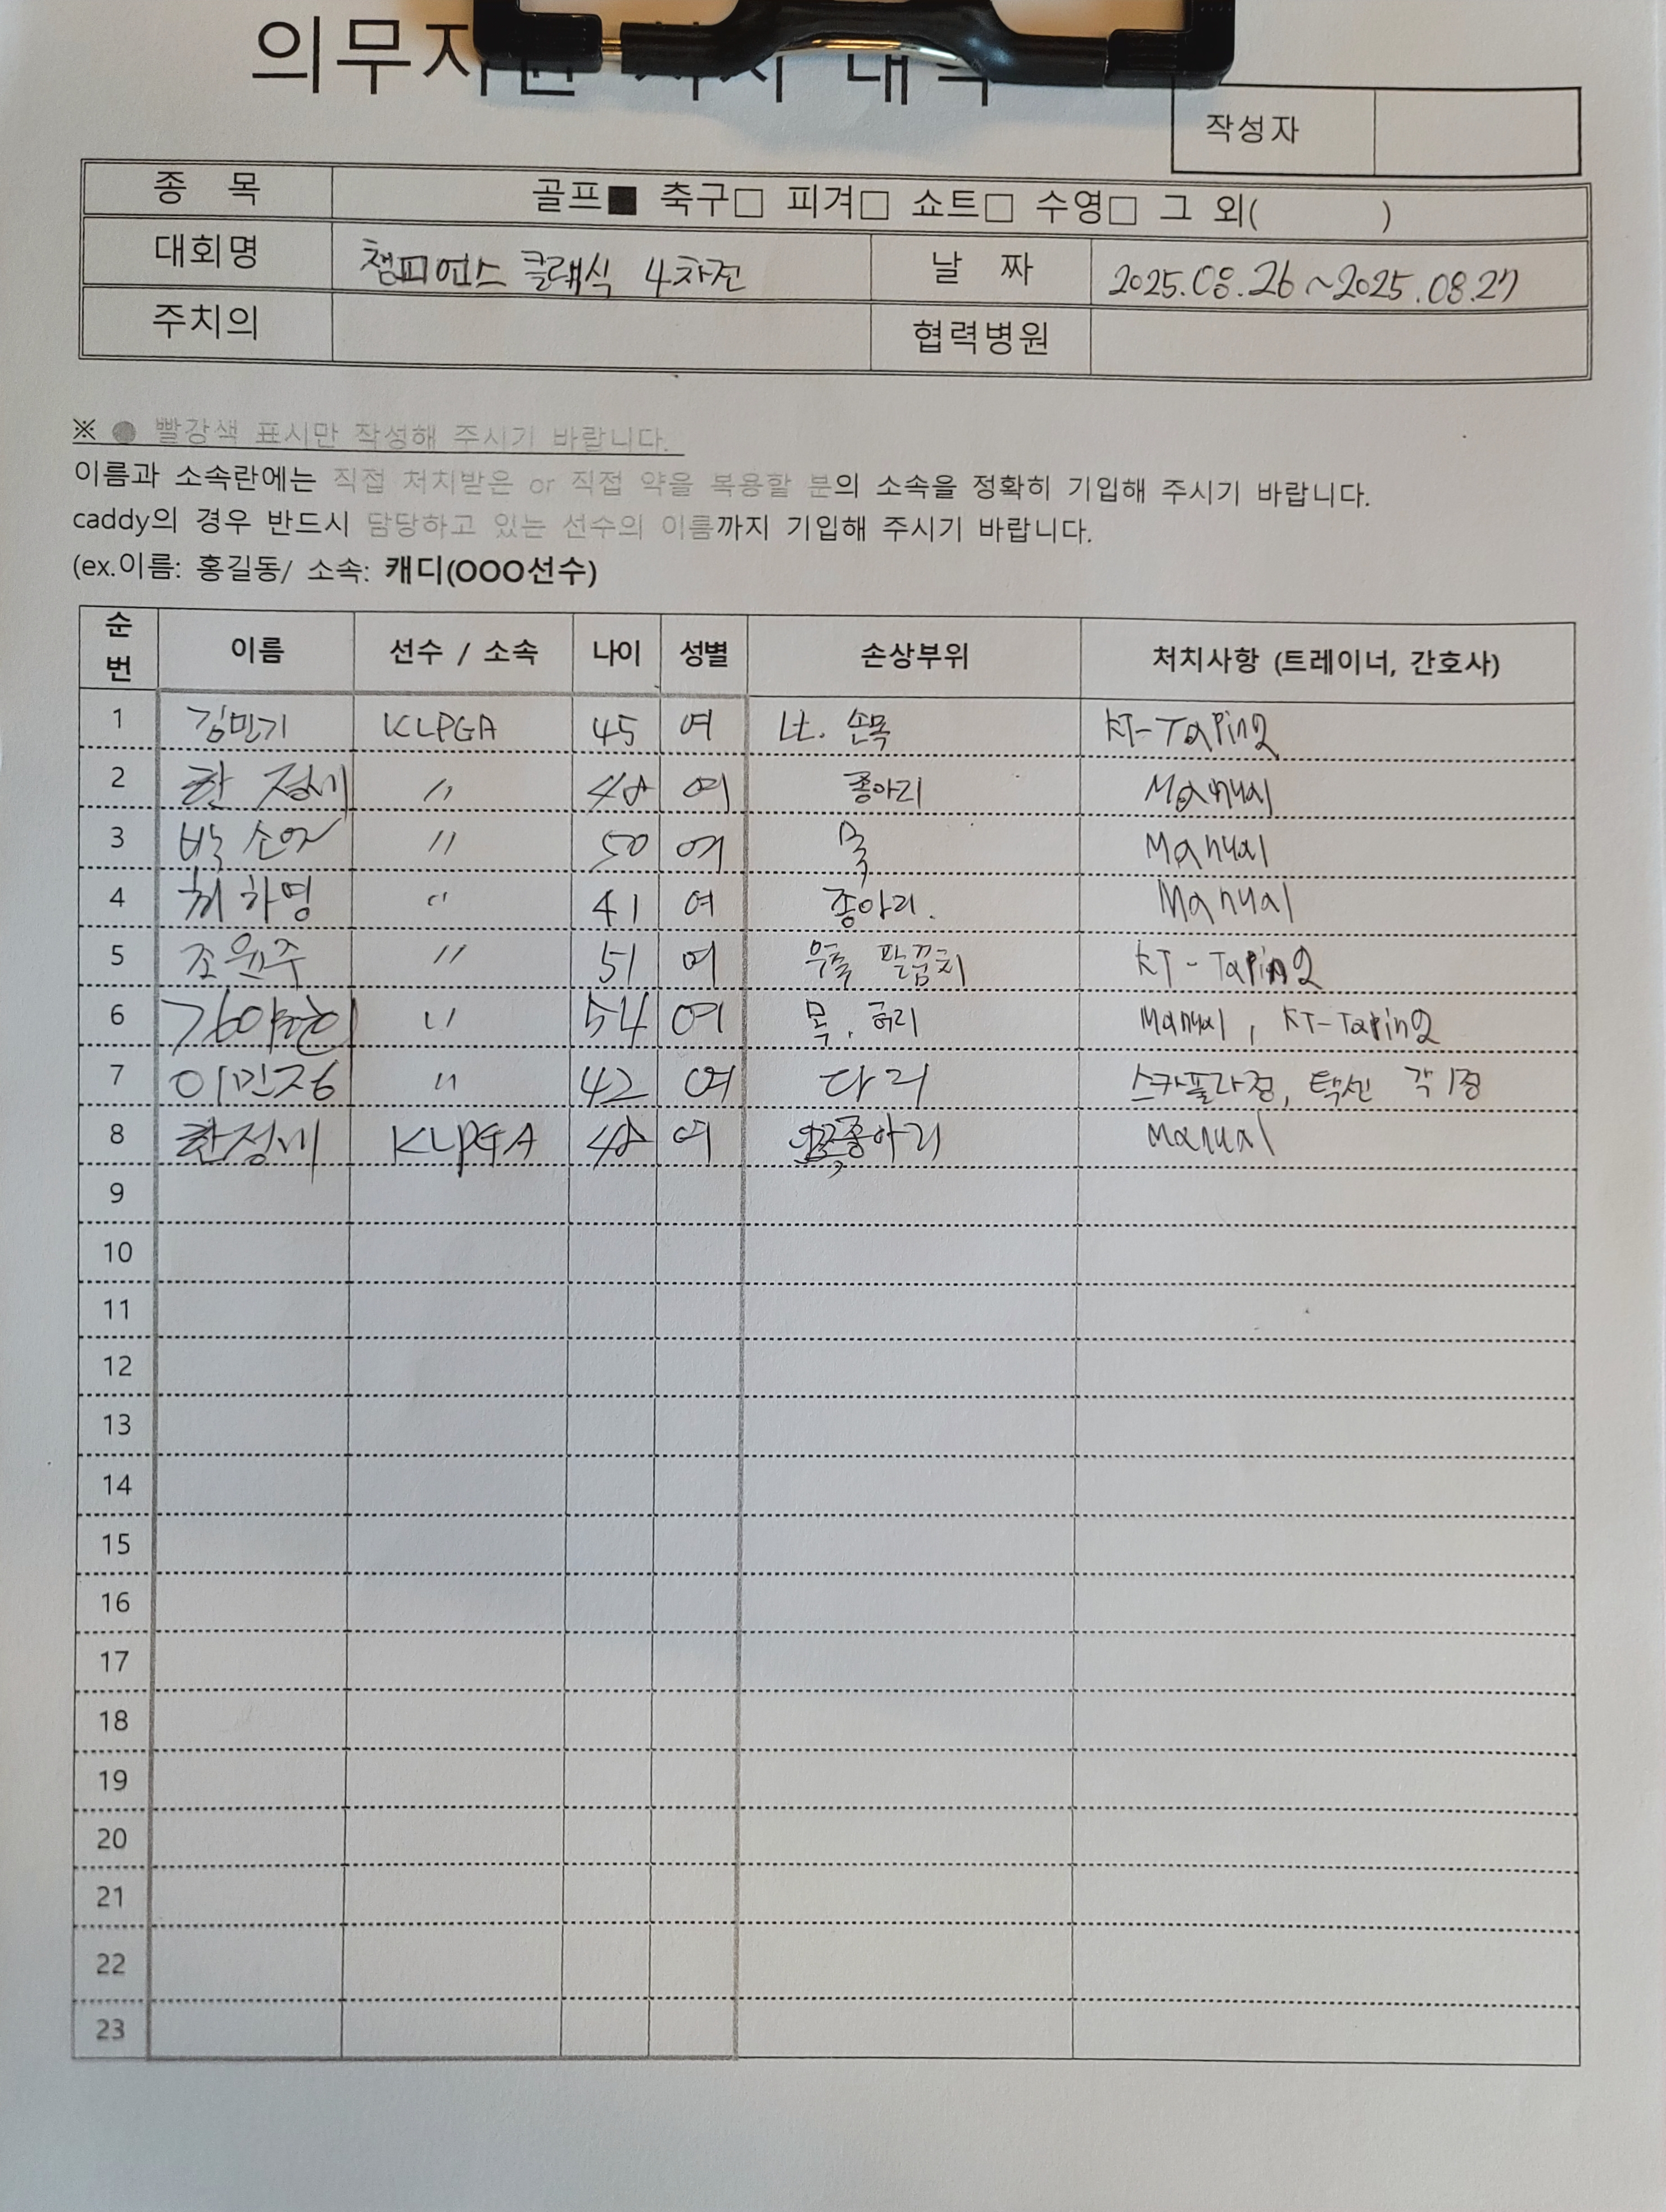 작성자
종 목 골프■ 축구□ 피겨□ 쇼트□ 수영□ 그 외( )
대회명 챔피언스 클래식 4차전 날 짜 2025.08.26 ~ 2025.08.27
주치의 협력병원
※ ● 빨강색 표시만 작성해 주시기 바랍니다.
이름과 소속란에는 직접 처치받은 or 직접 약을 복용할 분의 소속을 정확히 기입해 주시기 바랍니다.
caddy의 경우 반드시 담당하고 있는 선수의 이름까지 기입해 주시기 바랍니다.
(ex.이름: 홍길동/ 소속: 캐디(OOO선수)
순번 이름 선수 / 소속 나이 성별 손상부위 처치사항 (트레이너, 간호사)
1 김민기 KLPGA 45 여 Lt. 손목 KT-Taping
2 〃 48 여 종아리 Manual
3 박소 〃 50 여 목 Manual
4 최하영 〃 41 여 종아리. Manual
5 조윤주 〃 51 여 우측 팔꿈치 KT-Taping
6 〃 54 여 목, 허리 Manual, KT-Taping
7 이민정 〃 42 여 다리 스카풀라정, 택센 각 1정
8 KLPGA 48 여 종아리 Manual
9
10
11
12
13
14
15
16
17
18
19
20
21
22
23